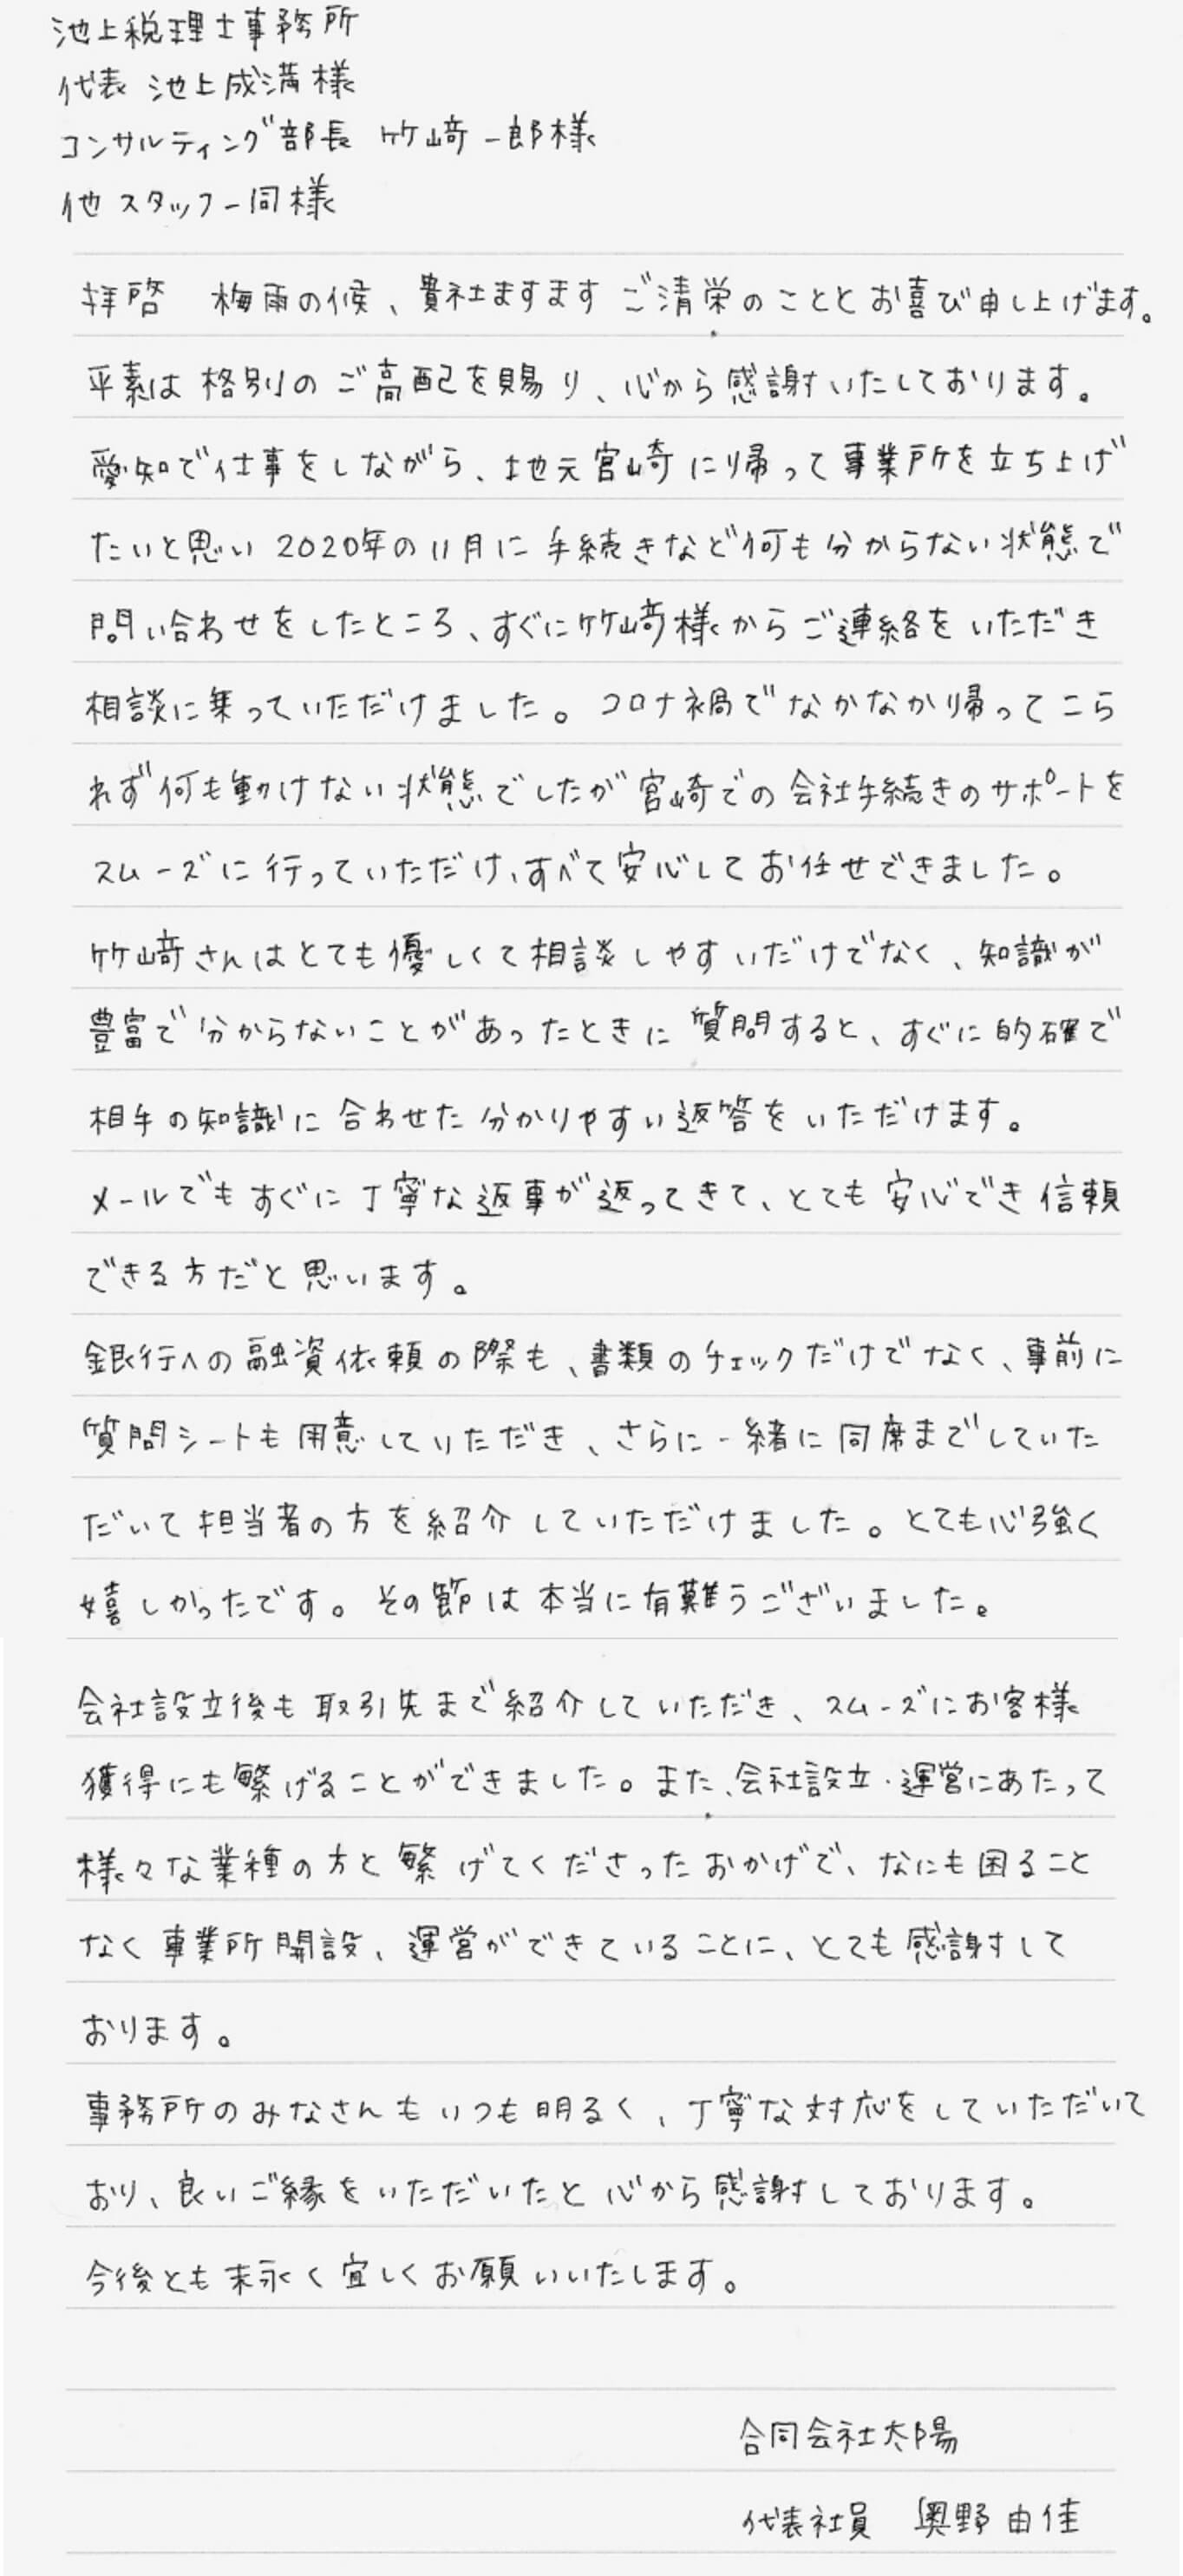 池上税理士事務所
代表 池上成満様
コンサルティング部長 竹﨑一郎様
他スタッフ一同様
拝啓　梅雨の候、貴社ますますご清栄のこととお喜び申し上げます。
平素は格別のご高配を賜り、心から感謝いたしております。
愛知で仕事をしながら、地元宮崎に帰って事業所を立ち上げ
たいと思い2020年の11月に手続きなど何も分からない状態で
問い合わせをしたところ、すぐに竹﨑様からご連絡をいただき
相談に乗っていただけました。コロナ禍でなかなか帰ってこら
れず何も動けない状態でしたが宮崎での会社手続きのサポートを
スムーズに行っていただけ、すべて安心してお任せできました。
竹﨑さんはとても優しくて相談しやすいだけでなく、知識が
豊富で分からないことがあったときに質問すると、すぐに的確で
相手の知識に合わせた分かりやすい返答をいただけます。
メールでもすぐに丁寧な返事が返ってきて、とても安心でき信頼
できる方だと思います。
銀行への融資依頼の際も、書類のチェックだけでなく、事前に
質問シートも用意していただき、さらに一緒に同席までしていた
だいて担当者の方を紹介していただけました。とても心強く
嬉しかったです。その節は本当に有難うございました。
会社設立後も取引先まで紹介していただき、スムーズにお客様
獲得にも繋げることができました。また、会社設立・運営にあたって
様々な業種の方と繋げてくださったおかげで、なにも困ること
なく事業所開設、運営ができていることに、とても感謝して
おります。
事務所のみなさんもいつも明るく、丁寧な対応をしていただいて
おり、良いご縁をいただいたと心から感謝しております。
今後とも末永く宜しくお願いいたします。
合同会社太陽
代表社員　奥野由佳